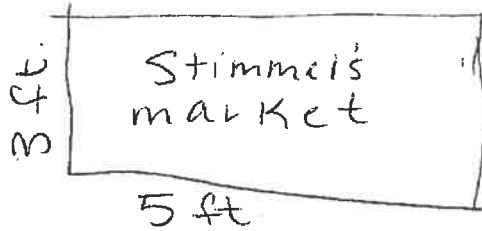 3 ft.
Stimmel's
market
5 ft